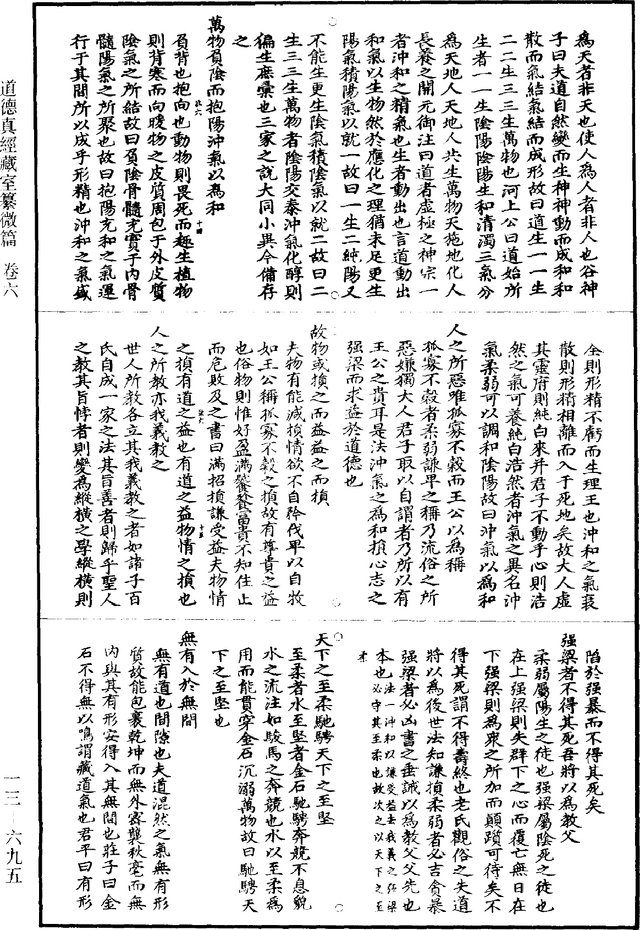 為天者非天也使人為人者非人也谷神
子曰夫道自然變而生神神動而成和和
散而氣結氣結而成形故曰道生一一生
二二生三三生萬物也河上公曰道始所
生者一一生陰陽陰陽生和清濁三氣分
為天地人天地人共生萬物天施地化人
長養之開元御注曰道者虛極之神宗一
者沖和之精氣也生者動出也言道動出
和氣以生物然於應化之理猶未足更生
陽氣積陽氣以就一故曰一生二純陽又
不能生更生陰氣積陰氣以就二故曰二
生三三生萬物者陰陽交泰沖氣化醇則
徧生庶彙也三家之說大同小異今備存
之
萬物負陰而抱陽沖氣以為和
負背也抱向也動物則畏死而趣生植物
則背寒而向暖物之皮質周包于外皮質
陰氣之所結故曰負陰骨髓充實于內骨
髓陽氣之所聚也故曰抱陽充和之氣運
行于其間所以成乎形精也沖和之氣盛
全則形精不虧而生理王也沖和之氣衰
散則形精相離而入于死地矣故大人虛
其靈府則純白來并君子不動乎心則浩
然之氣可養純白浩然者沖氣之異名沖
氣柔弱可以調和陰陽故曰沖氣以為和
人之所惡唯孤寡不穀而王公以為稱
孤寡不穀者柔弱謙卑之稱乃流俗之所
惡嫌獨大人君子取以自謂者乃所以有
王公之貴耳是法沖氣之為和損心志之
強梁而求益於道德也
故物或損之而益益之而損
夫物有能減損情欲不自矜伐卑以自牧
如王公稱孤寡不穀之損故有尊貴之益
也俗物則惟好盈滿饕餮富貴不知住止
而危敗及之書曰滿招損謙受益夫物情
之損有道之益也有道之益物情之損也
人之所教亦我義教之
世人所教各立其我義教之者如諸子百
氏自成一家之法其旨善者則歸乎聖人
之教其旨悖者則變為縱橫之學縱橫則
陷於强暴而不得其死矣
强梁者不得其死吾將以為教父
柔弱屬陽生之徒也强梁屬陰死之徒也
在上强梁則失群下之心而覆亡無日在
下强梁則為衆之所加而顛躓可待矣不
得其死謂不得壽終也老氏觀俗之失道
將以為後世法知謙損柔弱者必吉貪暴
强梁者必凶書之垂誡以為教父父先也
本也法一沖和以謙受益去我義之强梁
必守其至柔也故次之以天下之至
柔
天下之至柔馳騁天下之至堅
至柔者水至堅者金石馳騁奔競不息貌
水之流注如駿馬之奔競也水以至柔為
用而能貫穿金石沉溺萬物故曰馳騁天
下之至堅也
無有入於無間
無有道也間隙也夫道混然之氣無有形
質故能包裹乾坤而無外密襲秋毫而無
內與其有形安得入其無間也莊子曰金
石不得無以鳴謂藏道氣也君平曰有形
道德真經藏室纂微篇　卷六
一三－六九五